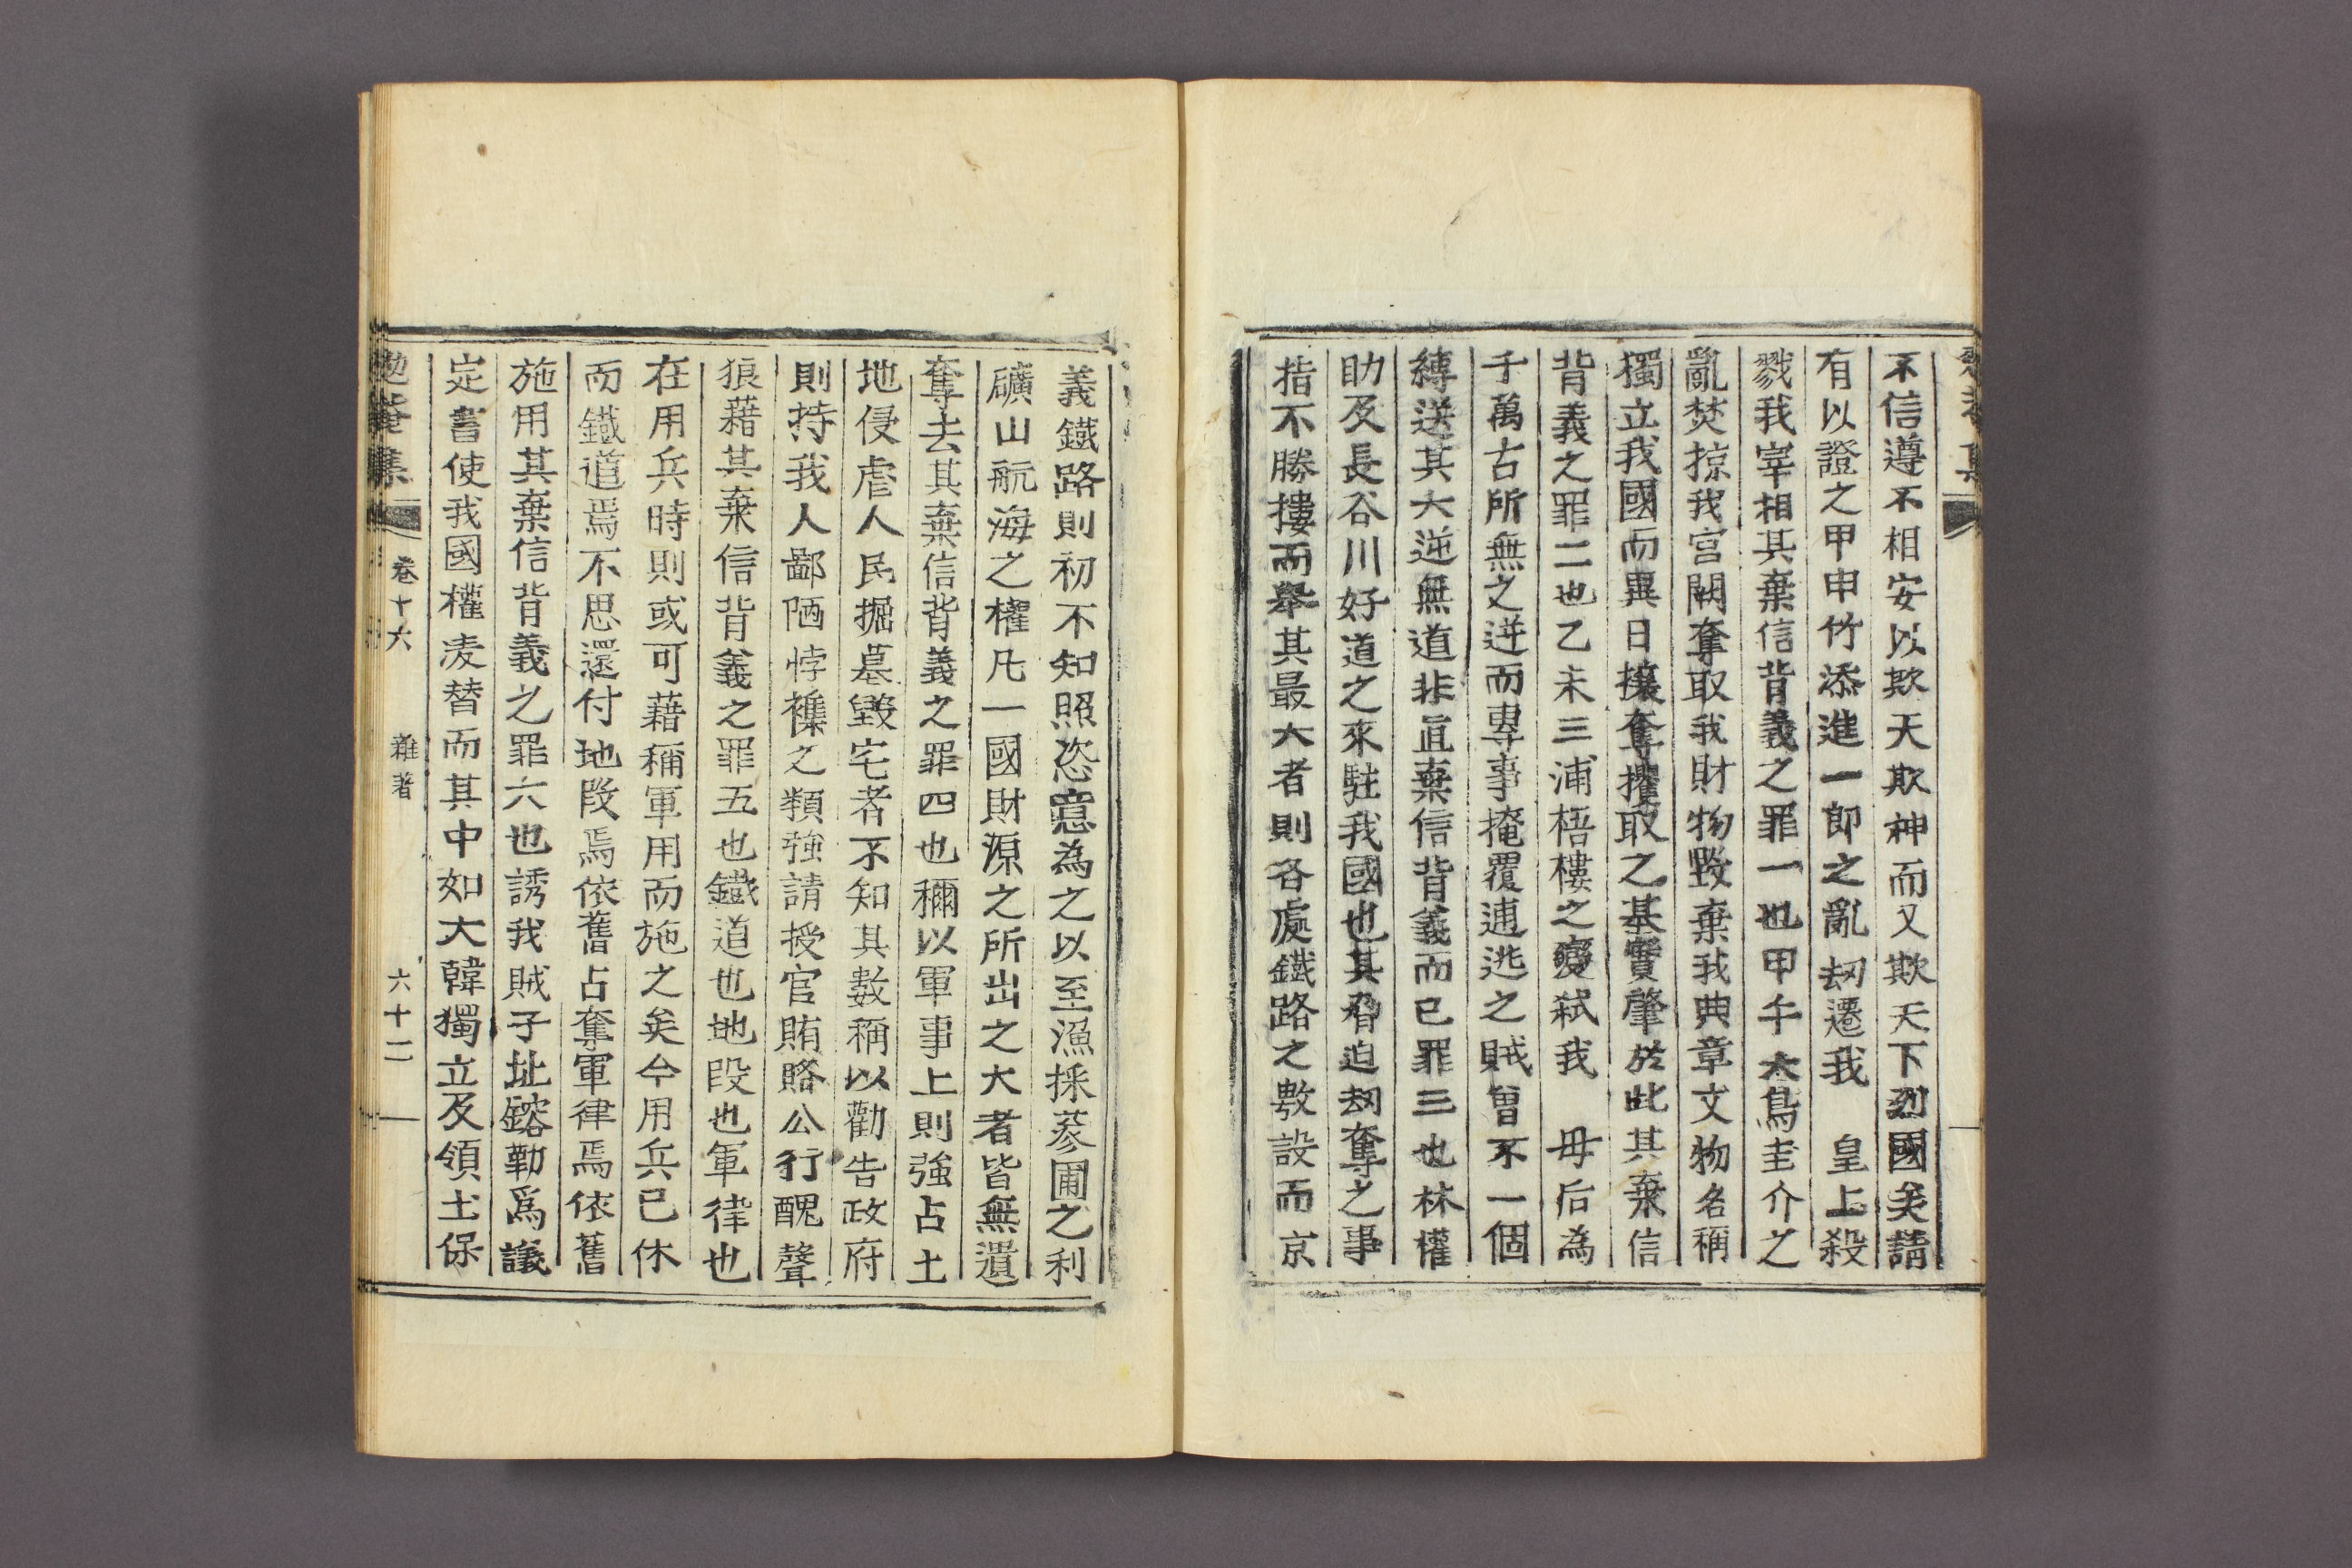 不信遵不相安以欺天欺神而又欺天下列國矣請
有以證之甲申竹添進一郎之亂刼遷我 皇上殺
戮我宰相其棄信背義之罪一也甲午大鳥圭介之
亂焚掠我宮闕奪取我財物毀棄我典章文物名稱
獨立我國而異日攘奪攫取之基實肇於此其棄信
背義之罪二也乙未三浦梧樓之變弑我 母后為
千萬古所無之逆而專事掩覆逋逃之賊曾不一個
縛送其大逆無道非直棄信背義而已罪三也林權
助及長谷川好道之來駐我國也其脅迫刼奪之事
指不勝摟而舉其最大者則各處鐵路之敷設而京
義鐵路則初不知照恣意為之以至漁採蔘圃之利
礦山航海之權凡一國財源之所出之大者皆無遺
奪去其棄信背義之罪四也稱以軍事上則強占土
地侵虐人民掘墓毀宅者不知其數稱以勸告政府
則持我人鄙陋悖襍之類強請授官賄賂公行醜聲
狼藉其棄信背義之罪五也鐵道也地段也軍律也
在用兵時則或可藉稱軍用而施之矣今用兵已休
而鐵道焉不思還付地段焉依舊占奪軍律焉依舊
施用其棄信背義之罪六也誘我賊子址鎔勒爲議
定書使我國權凌替而其中如大韓獨立及領土保
勉菴集 卷十六 雜著 六十二